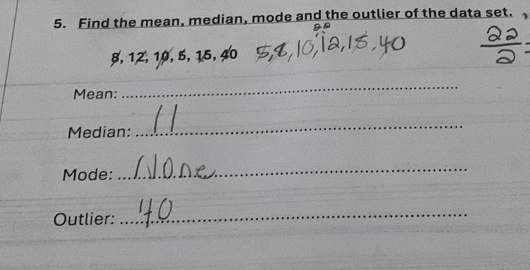 5. Find the mean, median, mode and the outlier of the data set.
8, 12, 10, 5, 15, 40 5,8,10,12,15,40
22
22
2 =
Mean: ........
Median: ....11....
Mode: ...None....
Outlier: ....40....